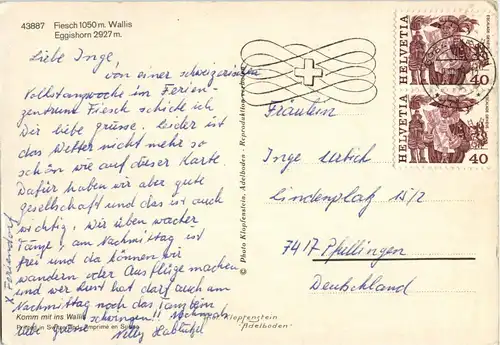 43887 Fiesch 1050 m. Wallis
Eggishorn 2927 m.
Liebe Inge,
von einer schweizerischen
Volkstanzwoche im Ferien-
zentrum Fiesch schicke ich
Dir liebe grüsse. leider ist
das Wetter nicht mehr so
schön wie auf dieser Karte.
Dafür haben wir aber gute
gesellschaft und das ist auch
wichtig. Wir üben wacker
Tänze, am Nachmittag ist
frei und da können wir
wandern oder Ausflüge machen
und wer Lust hat darf auch am
Nachmittag noch das Tanzbein
schwingen!! Nochmals
liebe grüsse
Nelly
x Feriendorf
Komm mit ins Wallis
© Photo Klopfenstein, Adelboden - Reproduktion
HELVETIA
40
HELVETIA
40
Fräulein
Inge
Lindenplatz 15/2
7417 Pfullingen
Deutschland
Klopfenstein
Adelboden